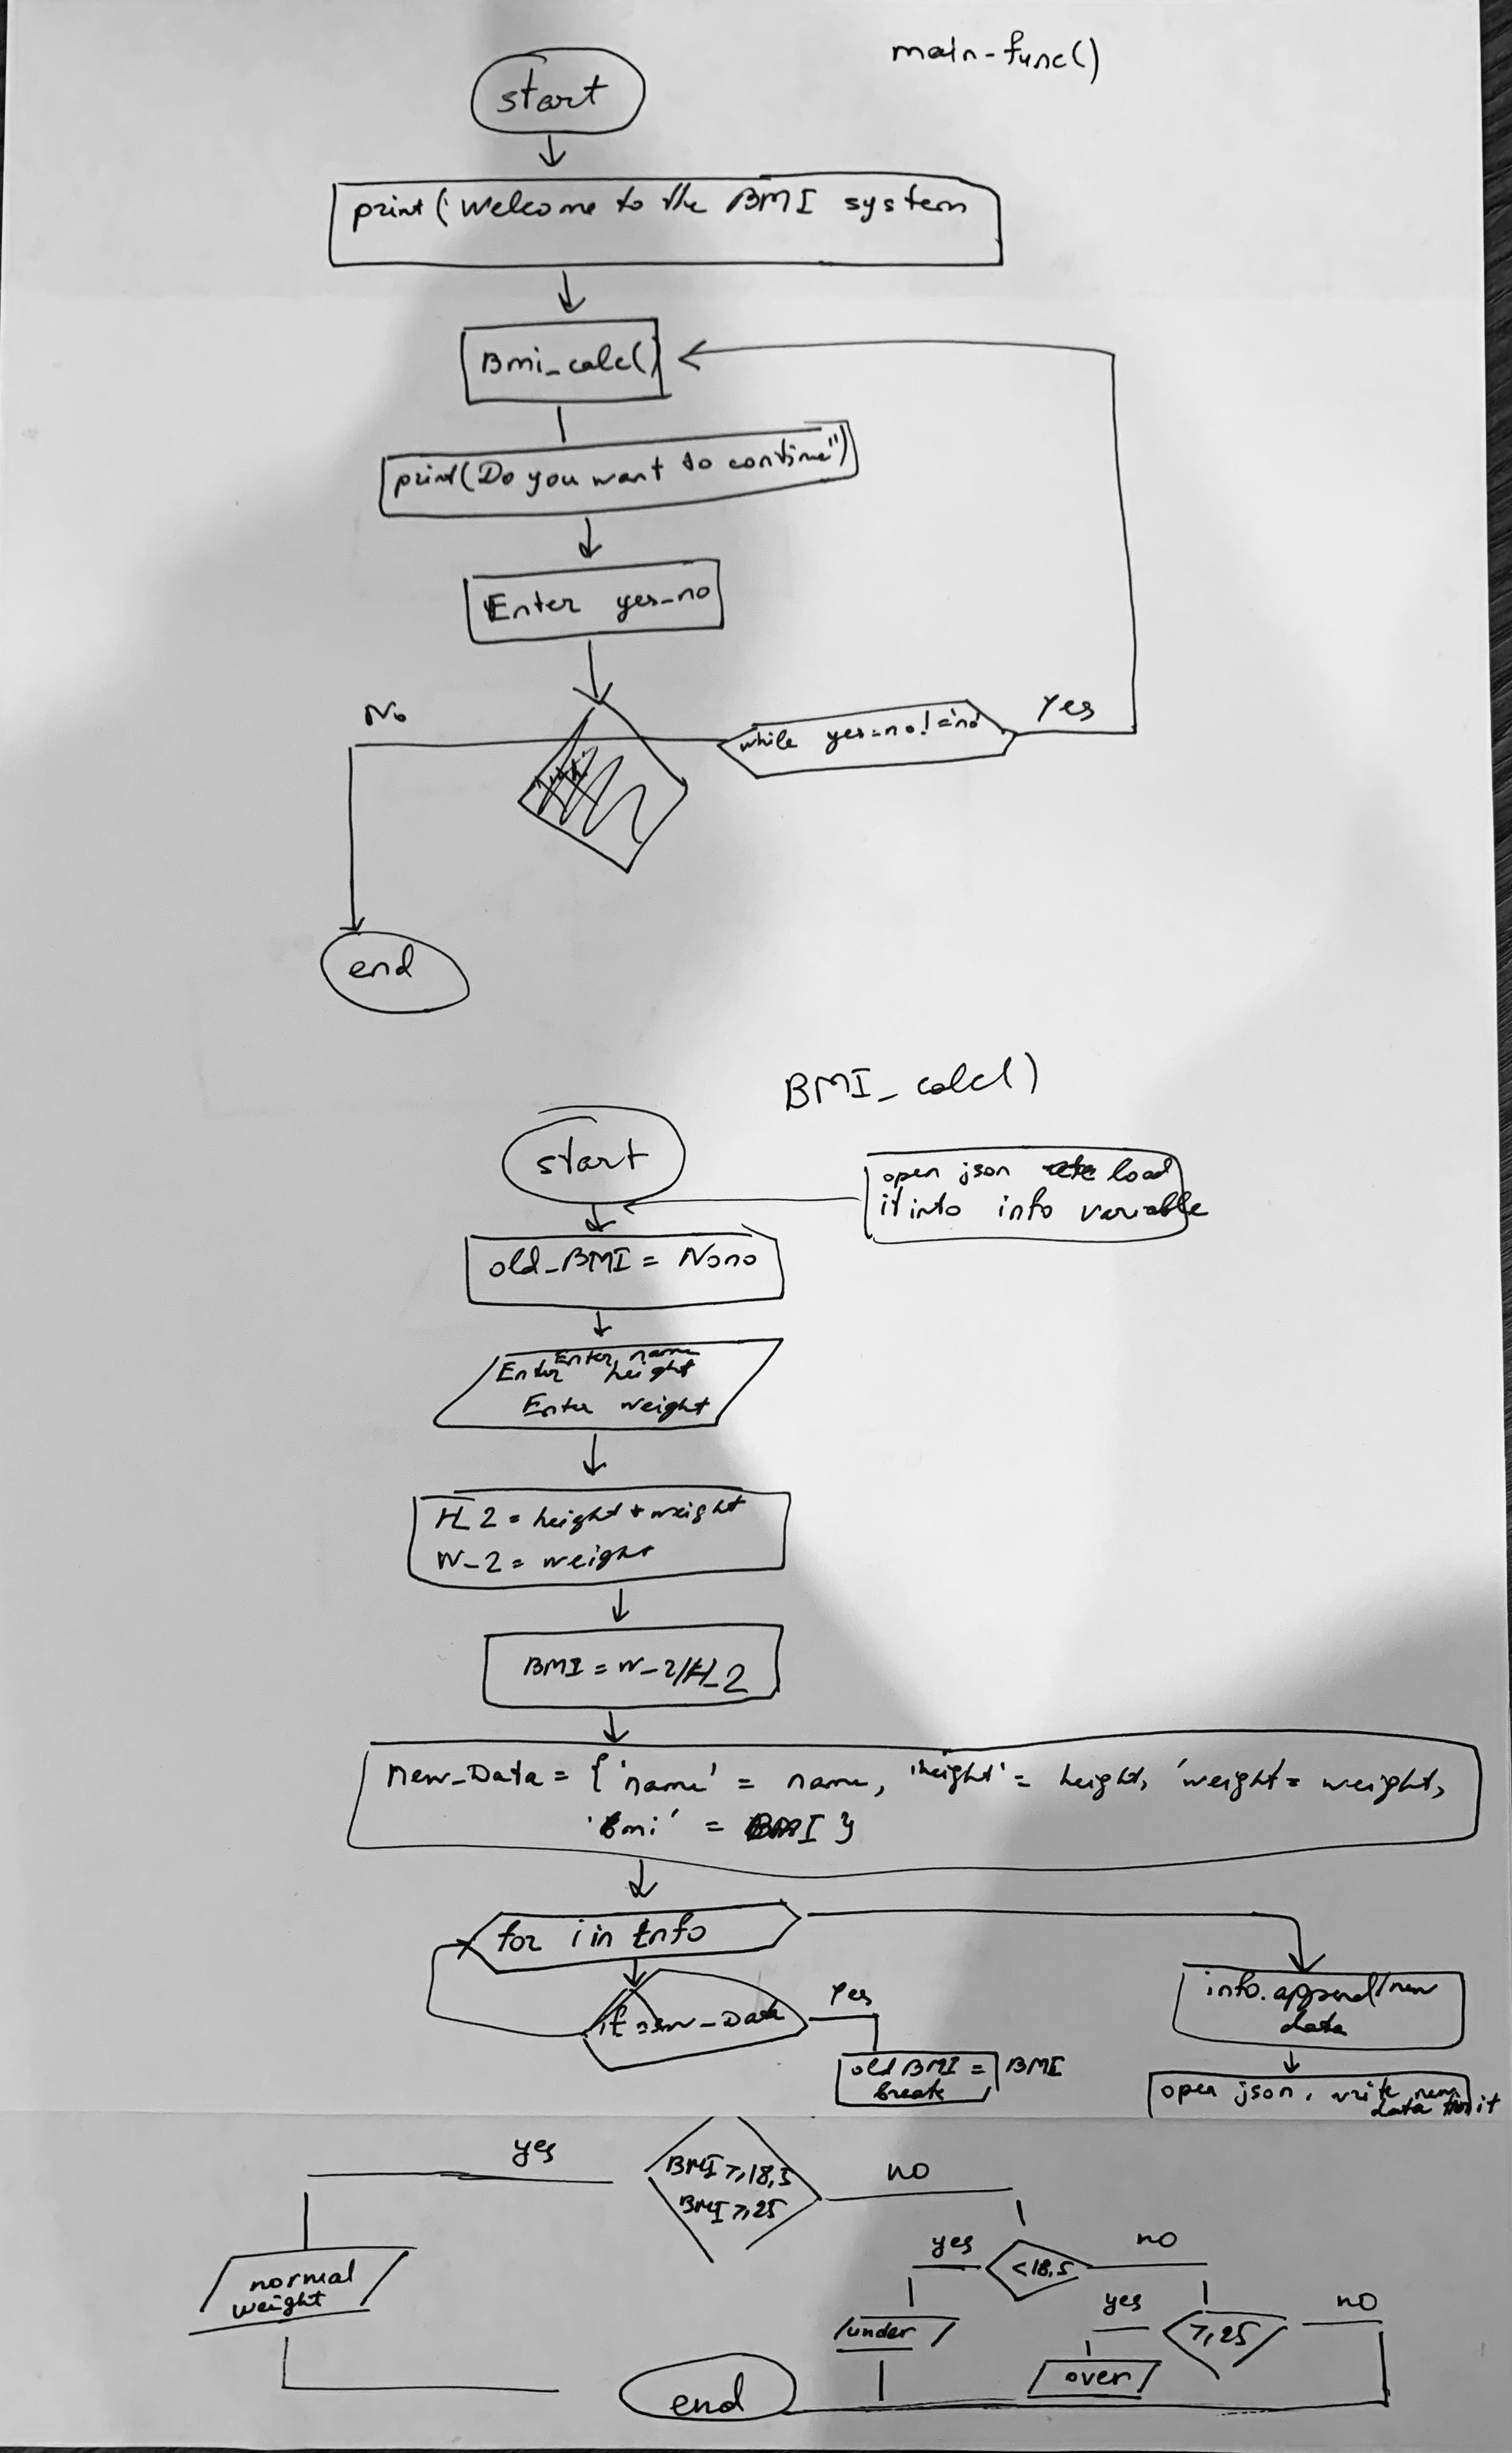 main-func()
start
print('Welcome to the BMI system
Bmi_calc()
print(Do you want to contine")
Enter yes-no
No
while yes-no!='no'
Yes
end
BMI_calc()
start
open json load
it into info variable
old-BMI = None
Enter name
Enter height
Enter weight
H_2 = height * weight
W-2 = weight
BMI = W-2/H_2
new-Data = {'name' = name, 'height' = height, 'weight' = weight,
'bmi' = BMI }
for i in Info
if new-Data
Yes
info.append(new
data
old BMI = BMI
break
open json, write new
data it
yes
BMI ⩾ 18,5
BMI ⩾ 25
no
yes
<18,5
no
normal
weight
under
yes
⩾25
no
over
end